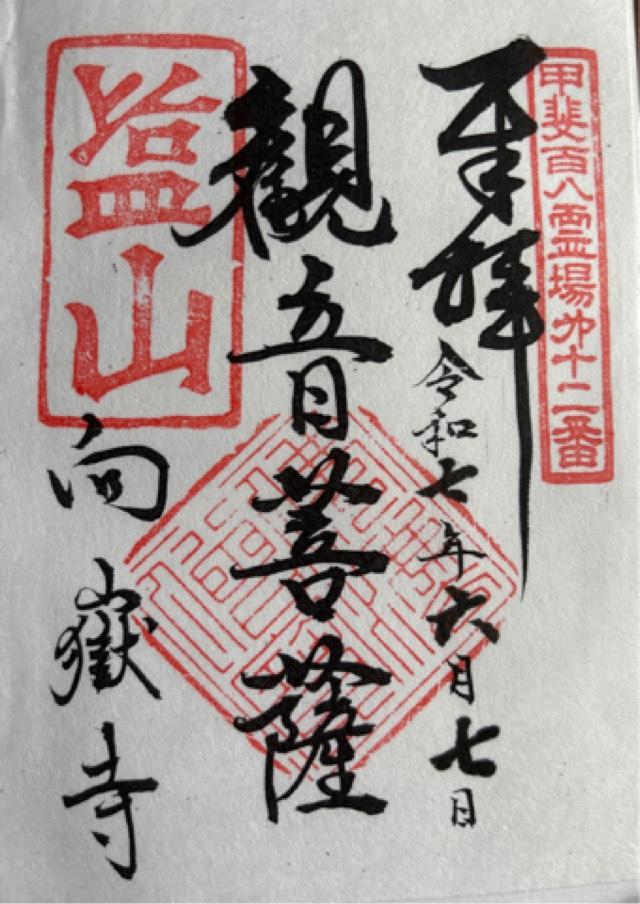 甲斐百八霊場第十二番
奉拝
令和七年六月七日
觀音菩薩
塩山
向嶽寺